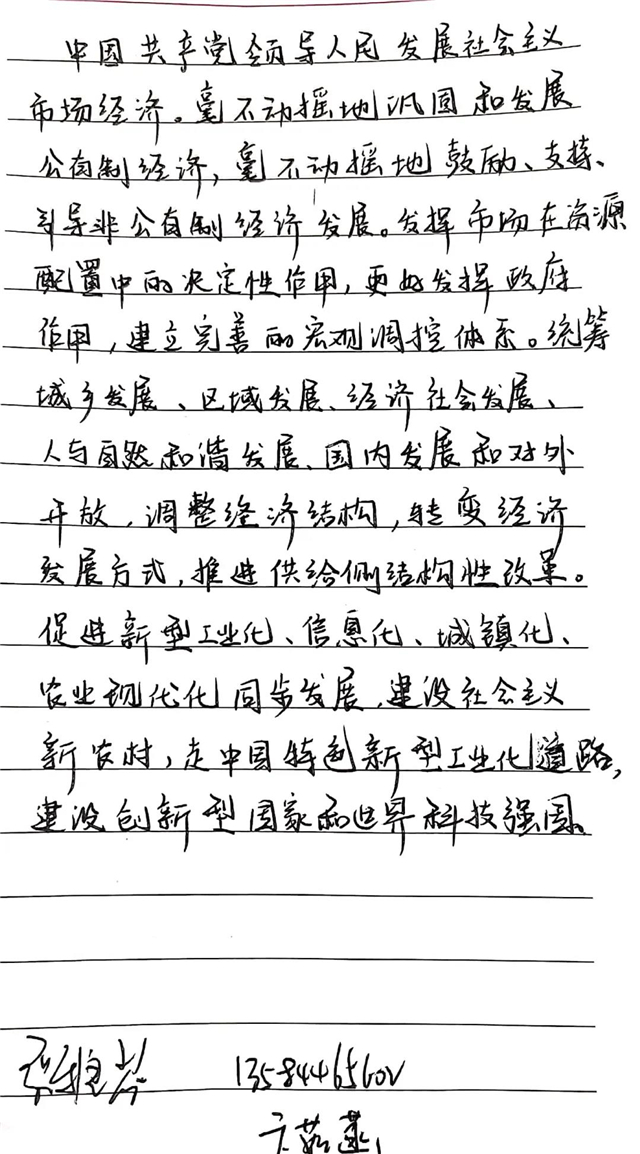 中国共产党领导人民发展社会主义
市场经济。毫不动摇地巩固和发展
公有制经济，毫不动摇地鼓励、支持、
引导非公有制经济发展。发挥市场在资源
配置中的决定性作用，更好发挥政府
作用，建立完善的宏观调控体系。统筹
城乡发展、区域发展、经济社会发展、
人与自然和谐发展、国内发展和对外
开放，调整经济结构，转变经济
发展方式，推进供给侧结构性改革。
促进新型工业化、信息化、城镇化、
农业现代化同步发展，建设社会主义
新农村，走中国特色新型工业化道路，
建设创新型国家和世界科技强国。